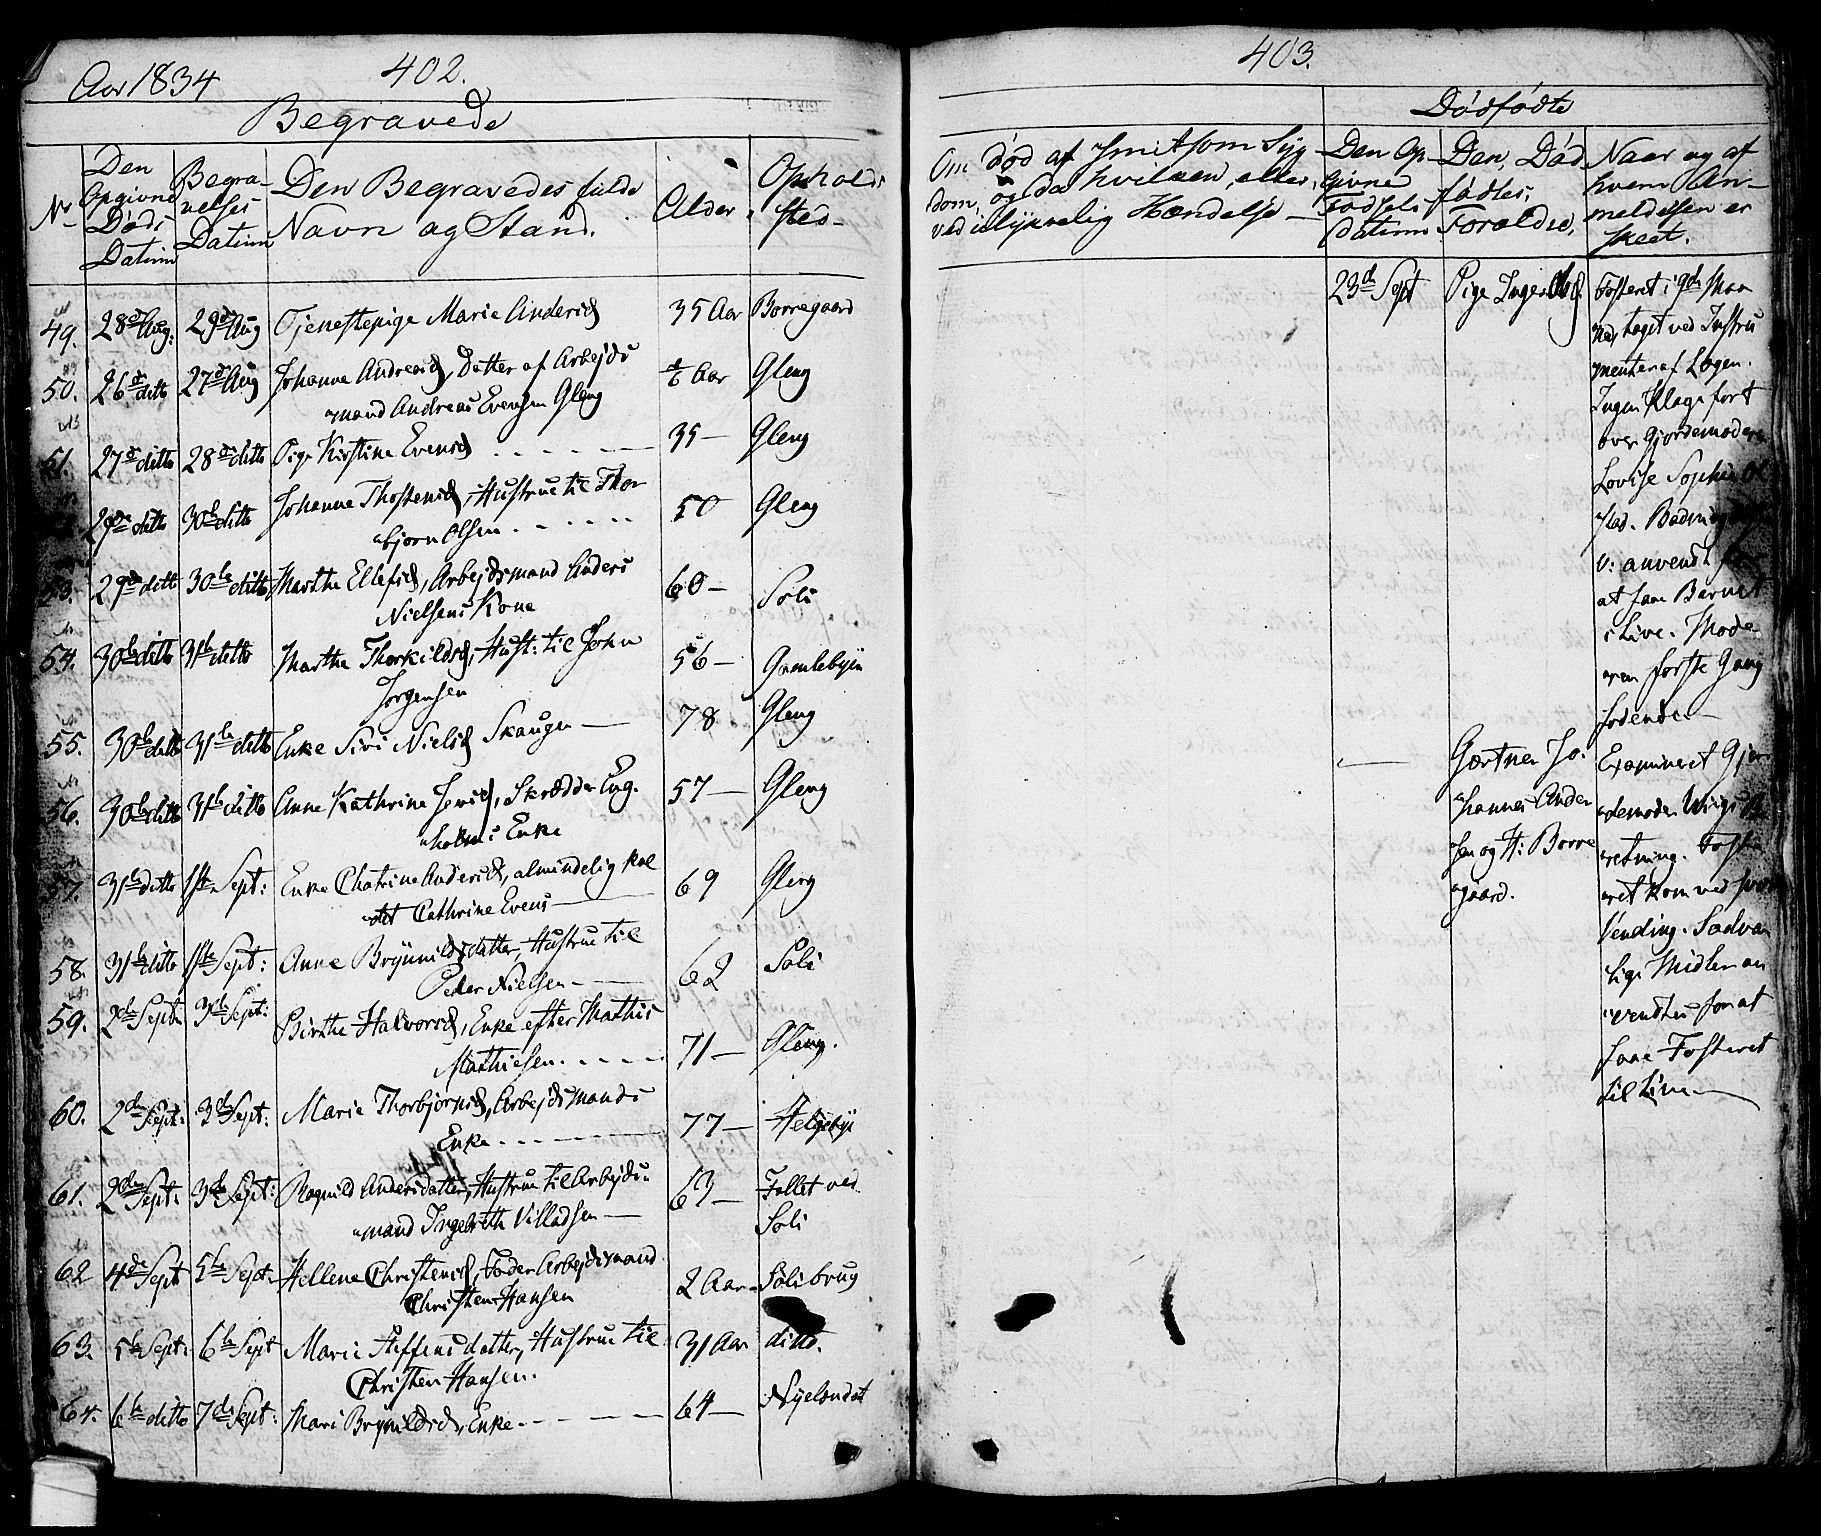 Aar 1834
402.
Begravede
No
Den Opgivne Døds Datum
Begravelses Datum
Den Begravedes fulde Navn og Stand.
Alder
Opholdssted
49. 28de Aug: 29de Aug Tjenestepige Marie Andersd 35 Aar Borregaard
50. 26de ditto 27de Aug Johanne Andreasd, Datter af Arbejds Aar Gleng
mand Andreas Evensen Gleng
51. 27de ditto 28de ditto Pige Kirstine Evensd 35 — Gleng
29de ditto 30te ditto Johanne Thostensd, Hustrue til Thor 50 Gleng
bjørn Olsen
53. 29de ditto 30te ditto Marthe Ellefsd, Arbejdsmand Anders 60 — Soli
Nielsens Kone
54. 30te ditto 31te ditto Marthe Thorkildsd, Hust: til John 56 — Gamlebyen
Jørgensen
55. 30te ditto 31te ditto Enke Siri Nielsd Skaugen — 78 Gleng
56. 30te ditto 31te ditto Anne Kathrine Jensd, Skrædder Eng- 57 — Gleng
holms Enke
57. 31te ditto 1ste Sept: Enke Chatrine Andersd, almindelig kal 69 Gleng
det Cathrine Evens —
58. 31te ditto 1ste Sept: Anne Brynildsdatter, Hustrue til 62 Soli
Peder Nielsen —
59. 2de Sept 3de Sept: Birthe Halvorsd, Enke efter Mathis
Mathiesen. 71 — Gleng.
60. 2de Sept: 3de Sept: Marie Thorbjørnsd, Arbejdsmands
Enke 77 — Helgebye
61. 2de Sept: 3de Sept: Ragnild Andersdatter, Hustrue til Arbejds- 63 — Follet ved
mand Ingebreth Villadsen — Soli
62 4de Sept 5te Sept: Hellene Christensd, Fader Arbejdsmand
Christen Hansen 2 Aar Solibrug
63. 5te Sept: 6te Sept Marie Steffensdatter, Hustrue til 31 Aar ditto.
Christen Hansen.
64. 6te ditto 7de Sept: Mari Brynildsd, Enke 64 — Nyelandet
403.
Dødfødte
Om død af Smitsom Syg-
dom, og da hvilken, eller
ved ulykkelig Hændelse —
Den Opgivne Fødsels datum
Den Dødfødtes, Forældre,
Naar og af hvem Anmeldelsen er skeet.
23de Sept
Pige Inger
Fosteret i 9de Maa
ned, taget ved Instru
menter af Lægen.
Ingen Klageført
over Gjordemoderen
Lovise Sophie
stad. Badning
v: anvendt for
at faae Barnet
i Live. Mode-
ren første Gang
fødende —
Gartner Jo-
hannes Ander
sen og H: Borre
gaard.
Examineret Gjor
demoder Wiigs Be
retning. Foste
ret kom ved
Vending. Sædvan
lige Midler an
vendtes for at
faae Fosteret
til Live —